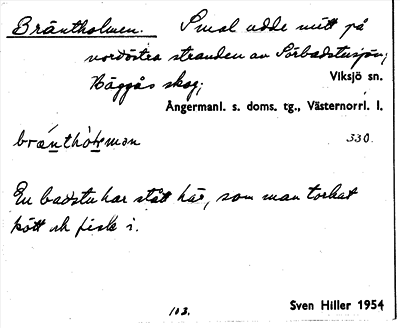 Bräntholmen. Smal udde mitt på
nordöstra stranden av Sörbadstusjön,
Häggås skog; Viksjö sn.
Ångermanl. s. doms. tg., Västernorrl. l.
bräntholmən 330.
En badstu har stått här, som man torkat
kött och fisk i.
103. Sven Hiller 1954